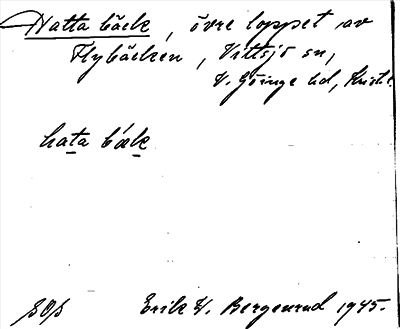 Hatta bäck, övre loppet av
Flybäcken, Vittsjö sn,
V. Göinge hd, Krist.
hata bæk
Erik W. Bergenrud 1945.